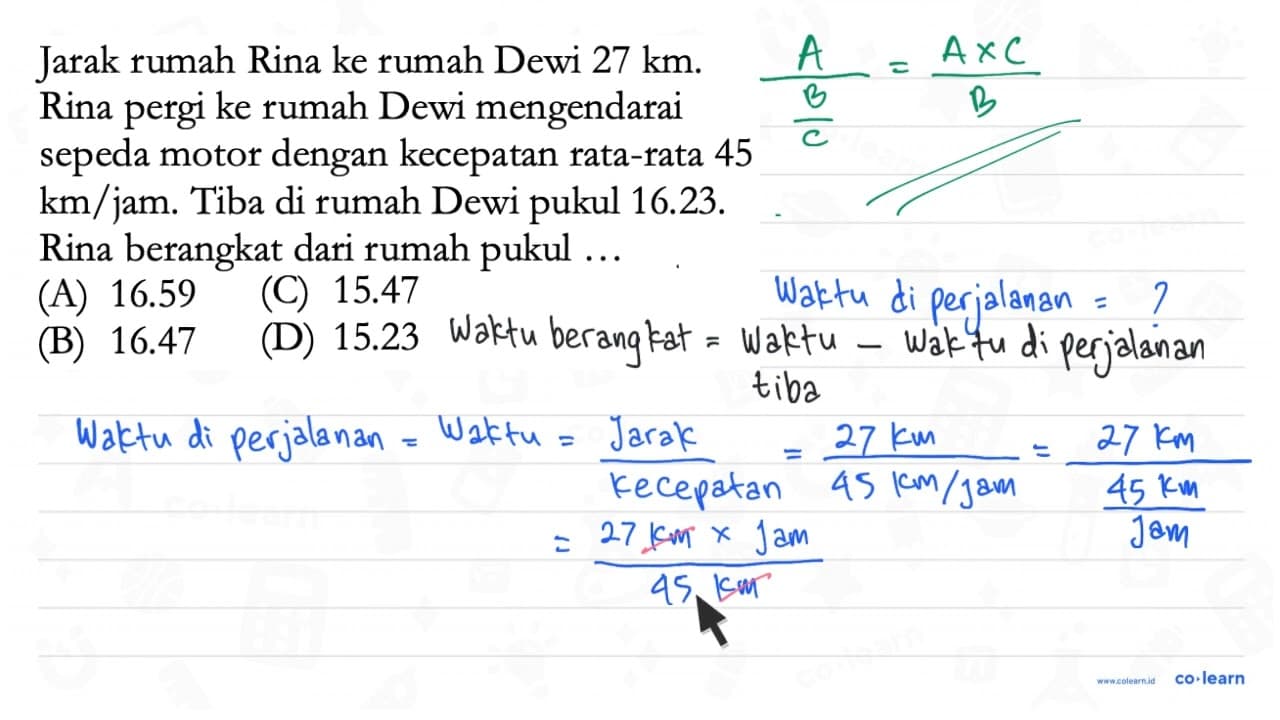 Jarak rumah Rina ke rumah Dewi 27 km.
Rina pergi ke rumah Dewi mengendarai
sepeda motor dengan kecepatan rata-rata 45
km/jam. Tiba di rumah Dewi pukul 16.23.
Rina berangkat dari rumah pukul ...
(A) 16.59 (C) 15.47
(B) 16.47 (D) 15.23
A = A x C
B B
C
Waktu di perjalanan = ?
Waktu berangkat = Waktu - Waktu di perjalanan
tiba
Waktu di perjalanan = Waktu = Jarak = 27 km = 27 km
Kecepatan 45 km/jam 45 km
Jam
= 27 km x Jam
45 km
www.colearn.id co·learn